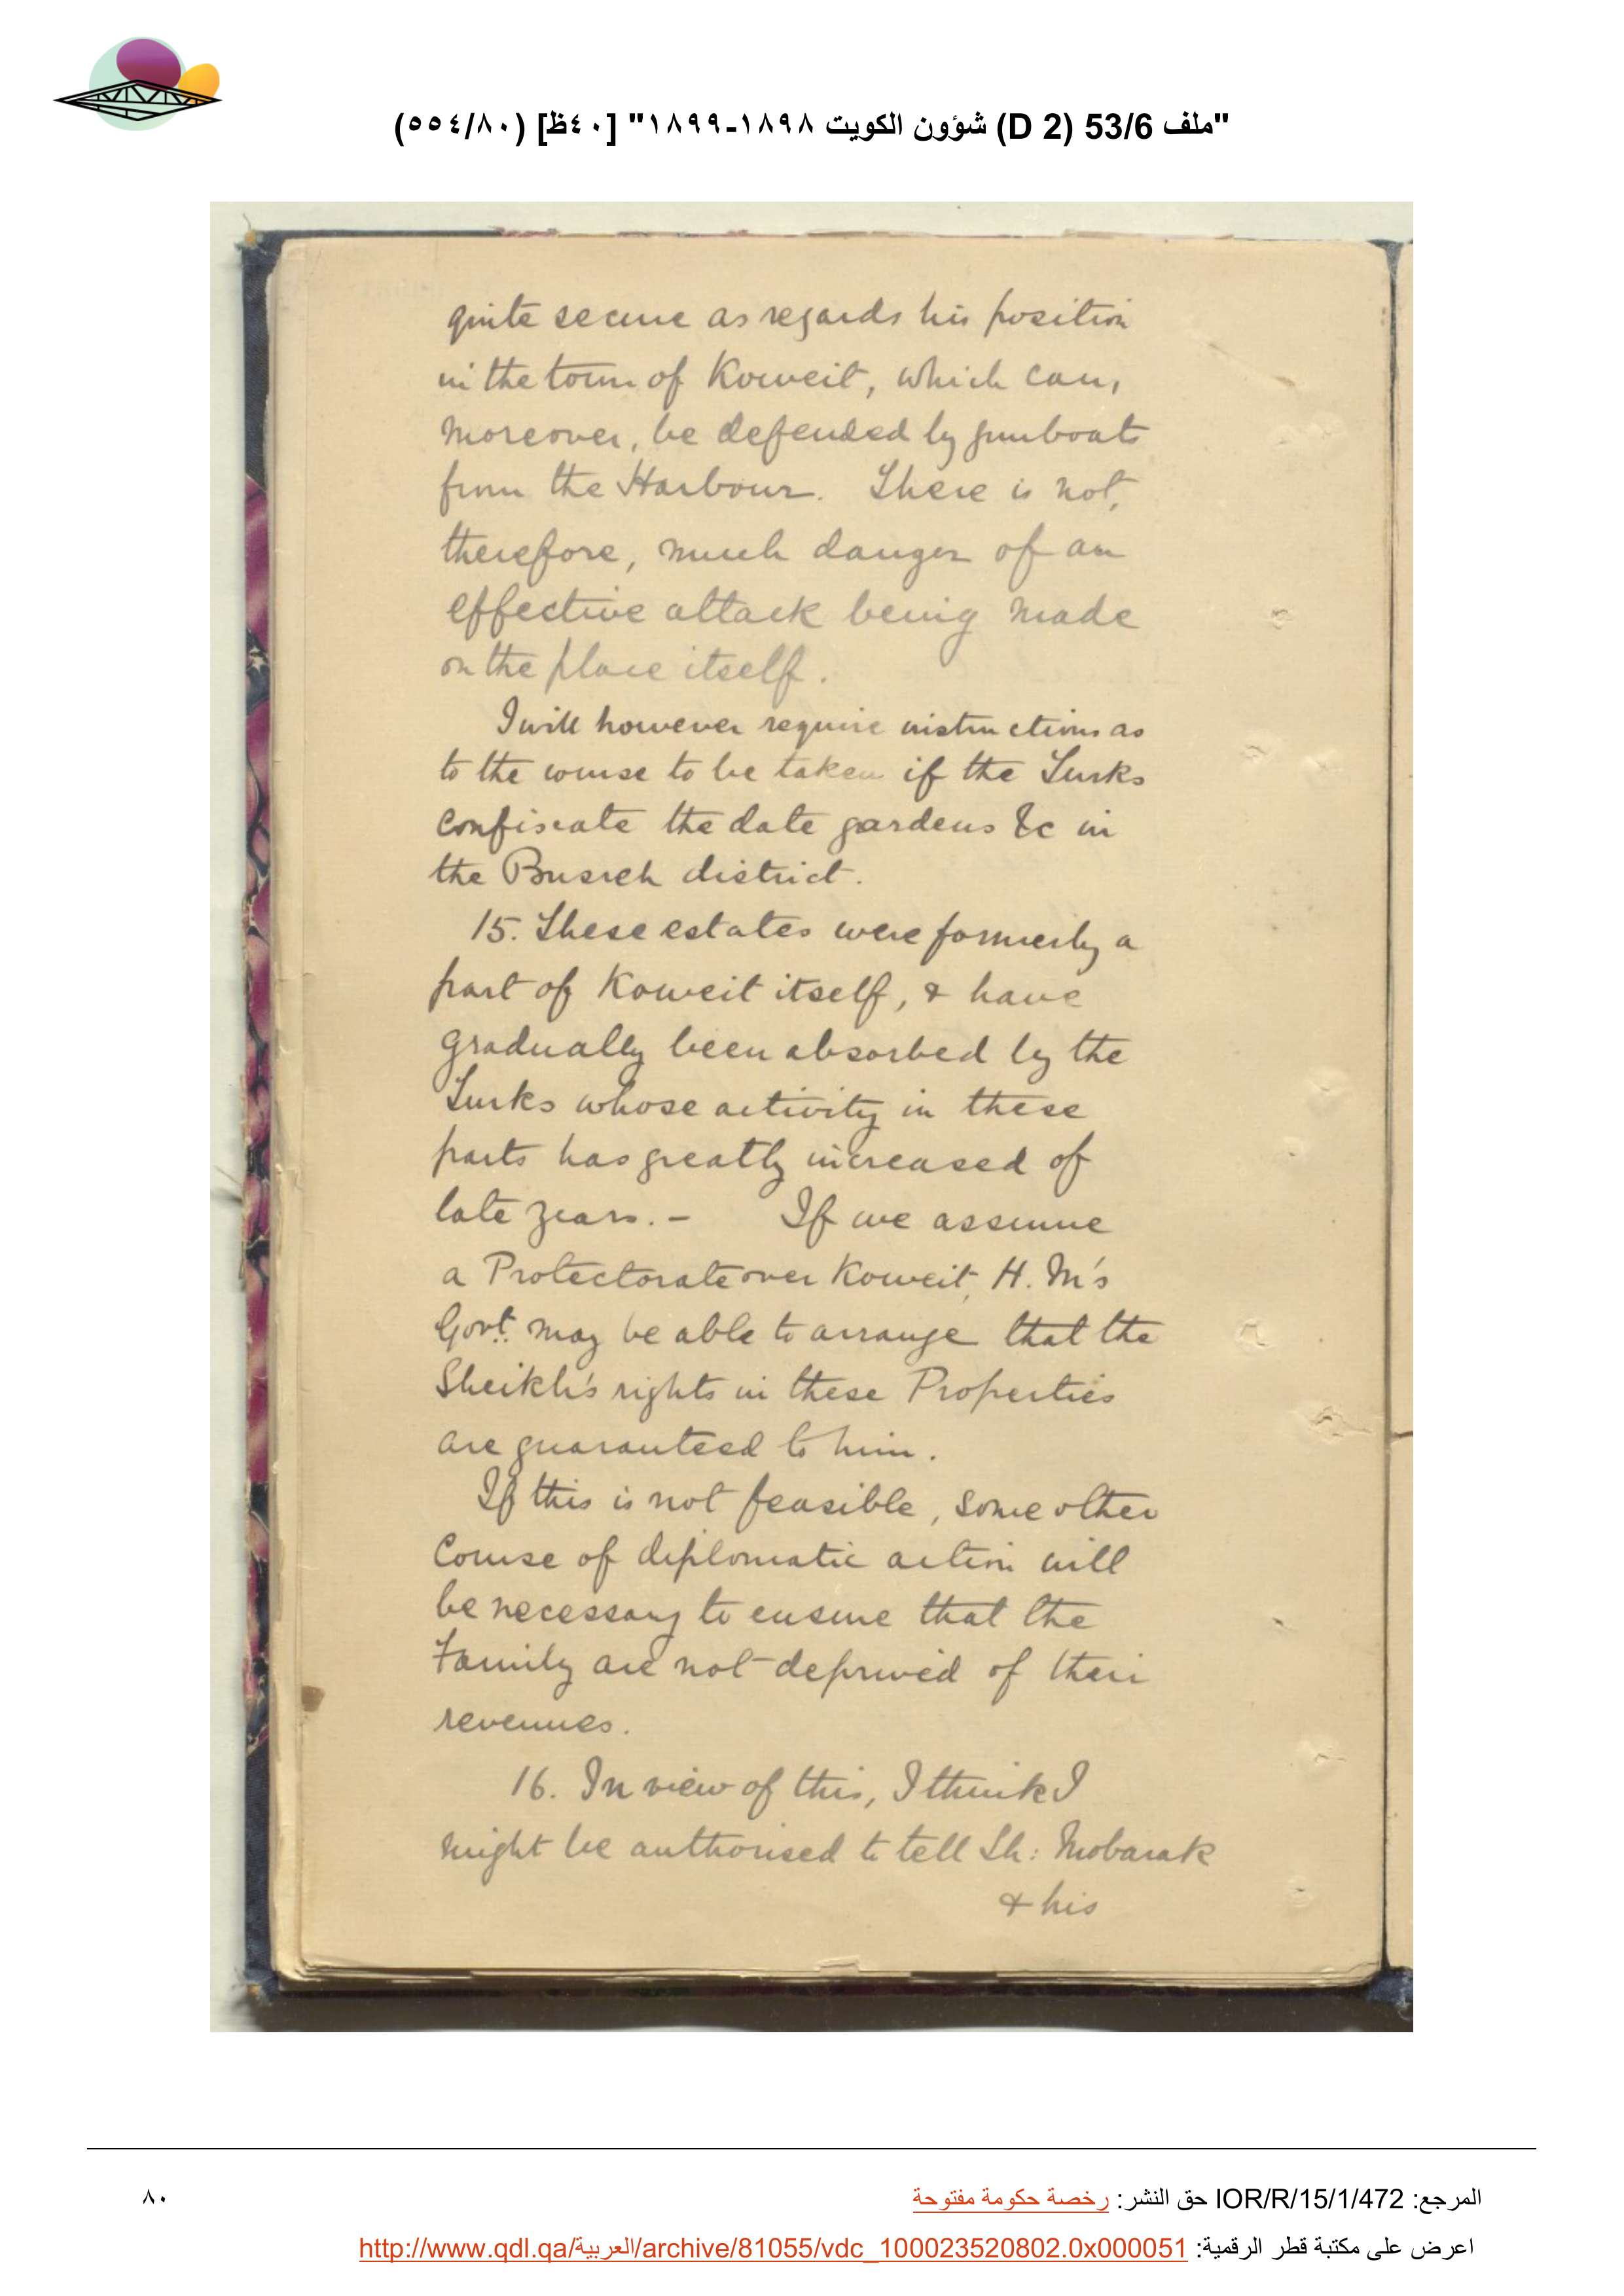 "ملف 53/6 (D 2) شؤون الكويت ١٨٩٨-١٨٩٩" [٤٠ظ] (٥٥٤/٨٠)
quite secure as regards his position
in the town of Koweit, which can,
moreover, be defended by gunboats
from the Harbour. There is not,
therefore, much danger of an
effective attack being made
on the place itself.
I will however require instructions as
to the course to be taken if the Turks
confiscate the date gardens &c in
the Busreh district.
15. These estates were formerly a
part of Koweit itself, & have
gradually been absorbed by the
Turks whose activity in these
parts has greatly increased of
late years. - If we assume
a Protectorate over Koweit, H. M's
Govt. may be able to arrange that the
Sheikh's rights in these Properties
are guaranteed to him.
If this is not feasible, some other
Course of diplomatic action will
be necessary to ensure that the
Family are not deprived of their
revenues.
16. In view of this, I think I
might be authorised to tell Sh: Mobarak
& his
المرجع: IOR/R/15/1/472 حق النشر: رخصة حكومة مفتوحة
٨٠
اعرض على مكتبة قطر الرقمية: http://www.qdl.qa/العربية/archive/81055/vdc_100023520802.0x000051